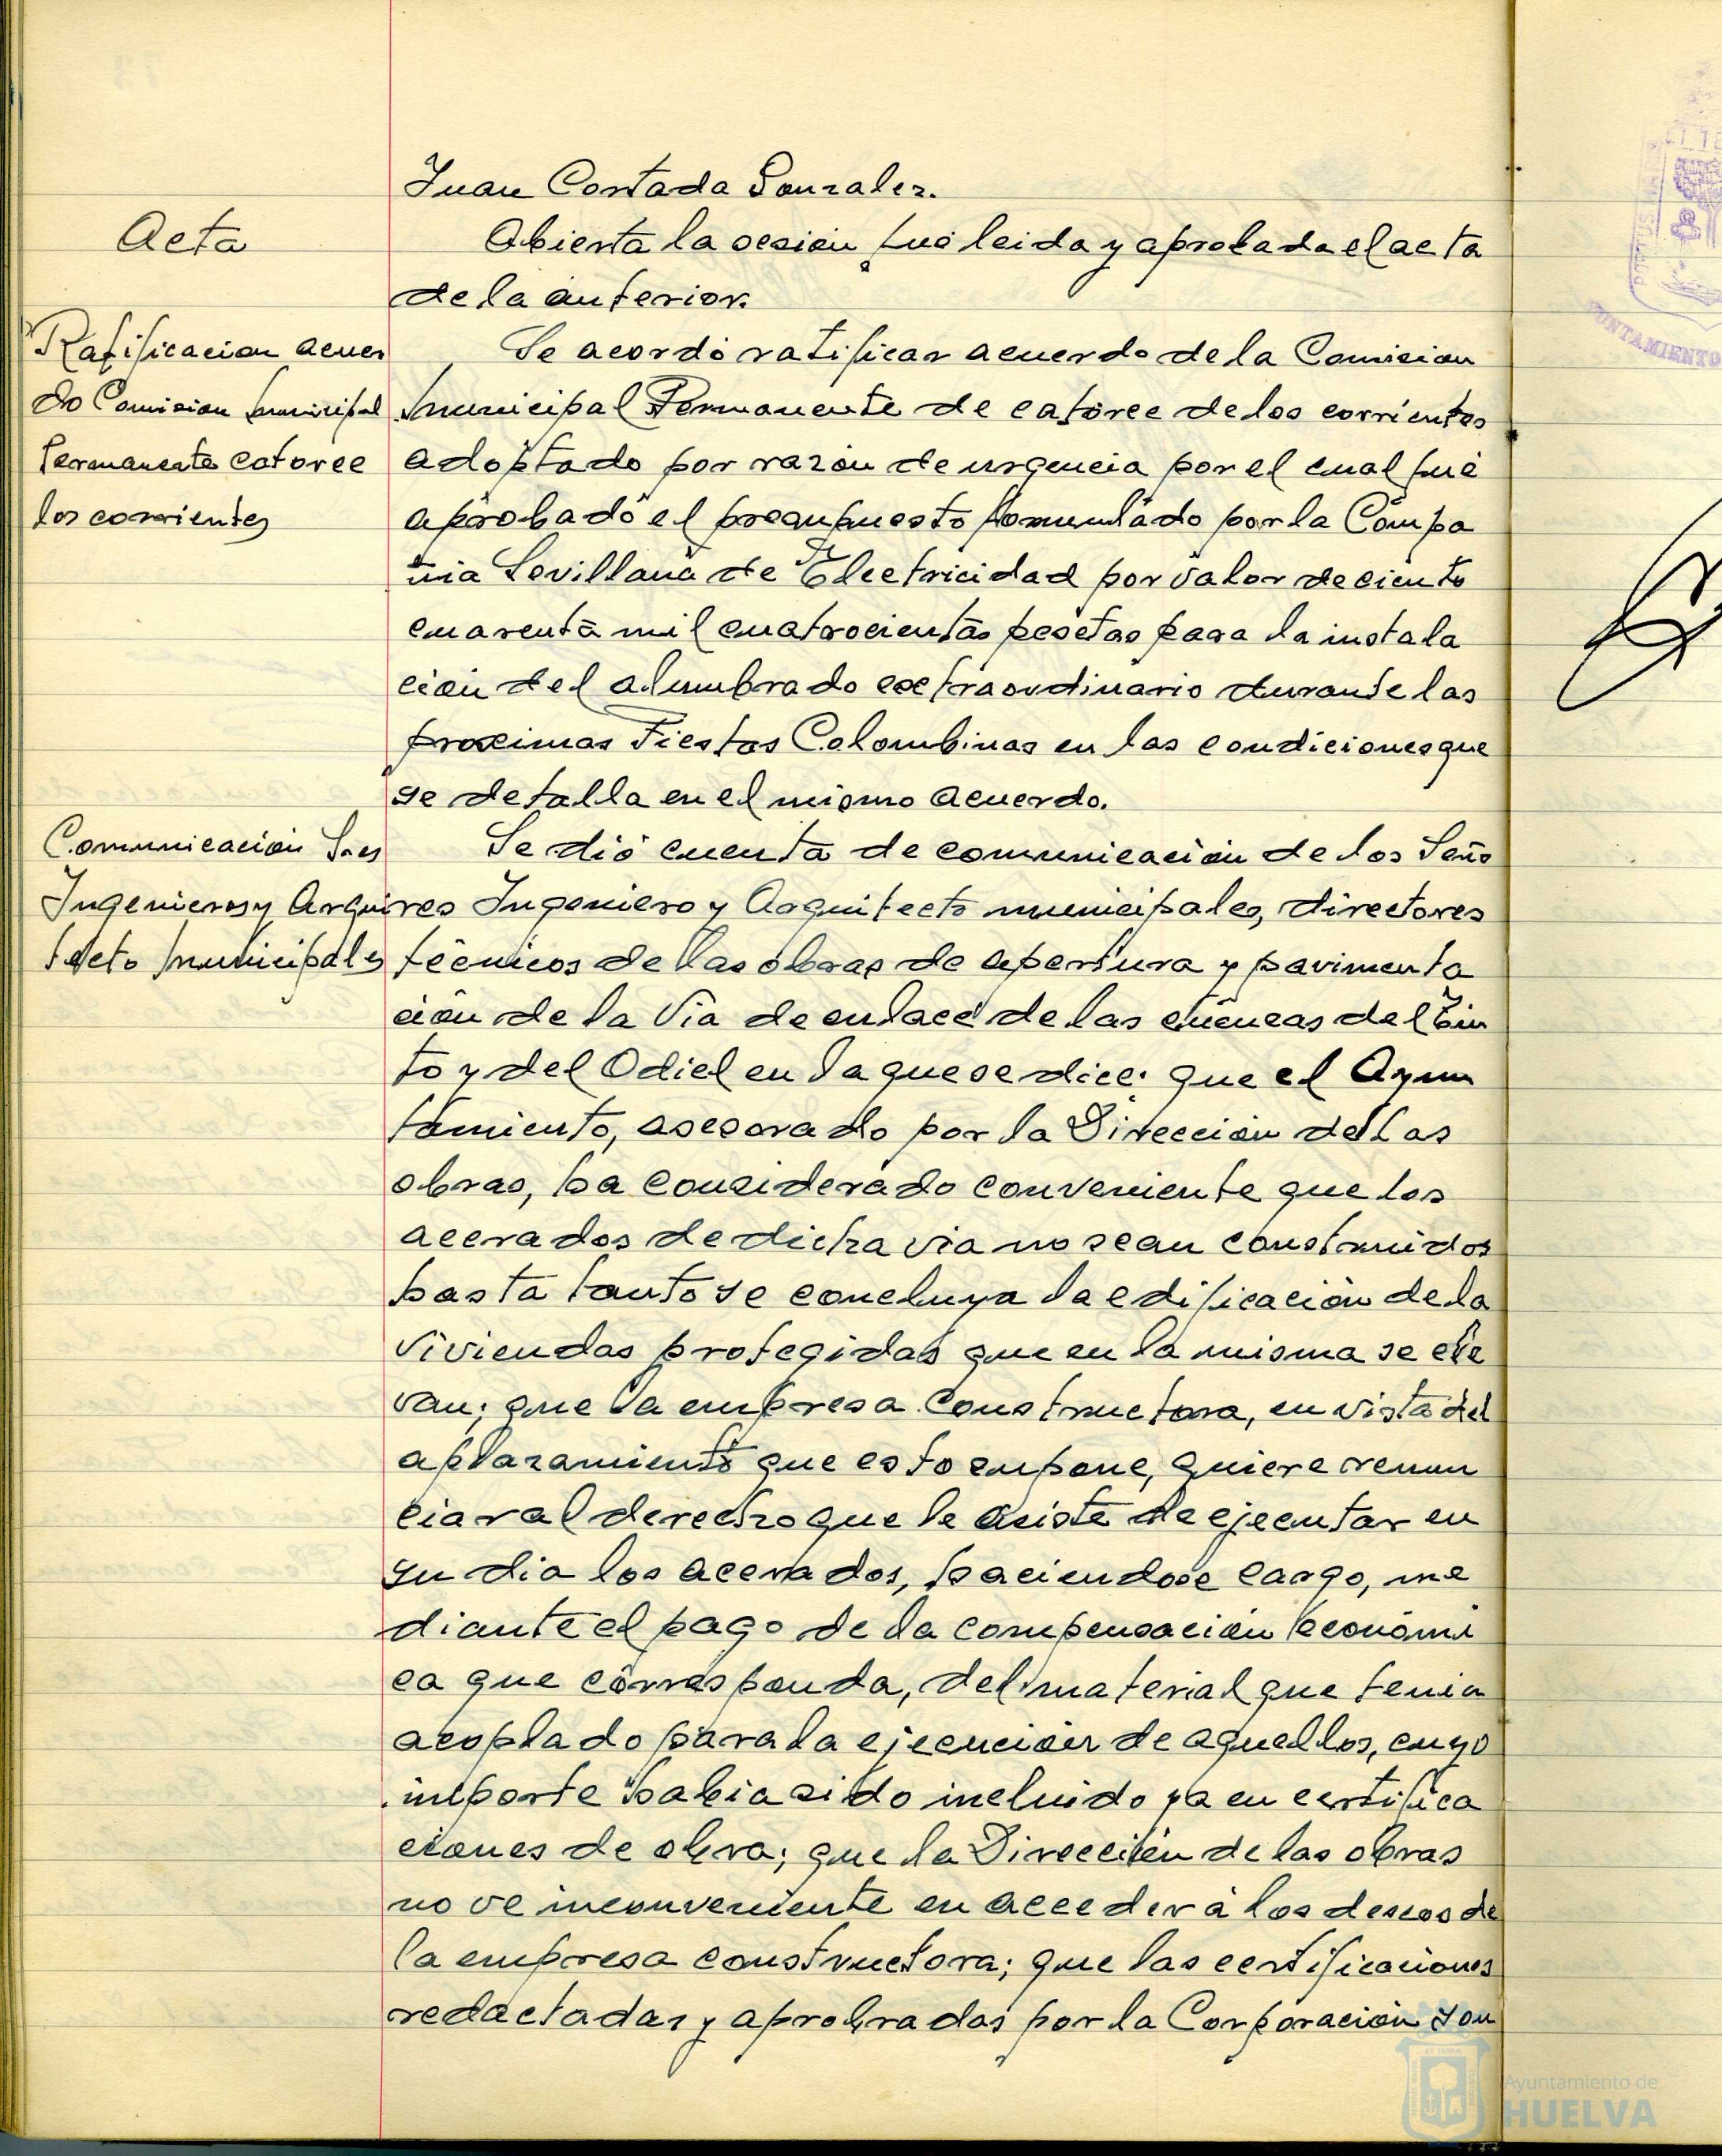 Juan Contada Gonzalez.
Acta
Abierta la sesión fué leida y aprobada el acta
de la anterior.
Ratificacion acuer
do Comision municipal
Permanente catorce
los corrientes
Se acordó ratificar acuerdo de la Comision
municipal Permanente de catorce de los corrientes
adoptado por razón de urgencia por el cual fué
aprobado el presupuesto formulado por la Compa
ñia Sevillana de Electricidad por valor de ciento
cuarenta mil cuatrocientas pesetas para la instala
ción del alumbrado extraordinario durante las
proximas Fiestas Colombinas en las condiciones que
se detalla en el mismo acuerdo.
Comunicación Sres
Ingenieros y Arqui
tecto municipales
Se dió cuenta de comunicación de los Seño
res Ingeniero y Arquitecto municipales, directores
técnicos de las obras de apertura y pavimenta
ción de la Via de enlace de las cuencas del Tin
to y del Odiel en la que se dice: que el Ayun
tamiento, asesorado por la Dirección de las
obras, ha considerado conveniente que los
acerados de dicha via no sean construidos
hasta tanto se concluya la edificación de la
viviendas protegidas que en la misma se ele
van; que la empresa constructora, en vista del
aplazamiento que esto supone, quiere renun
ciar al derecho que le asiste de ejecutar en
su dia los acerados, haciendose cargo, me
diante el pago de la compensación económi
ca que corresponda, del material que tenia
acoplado para la ejecución de aquellos, cuyo
importe habia sido incluido ya en certifica
ciones de obra; que la Dirección de las obras
no ve inconveniente en acceder á los deseos de
la empresa constructora; que las certificaciones
redactadas y aprobradas por la Corporación son
AYUNTAMIENTO
Ayuntamiento de
HUELVA